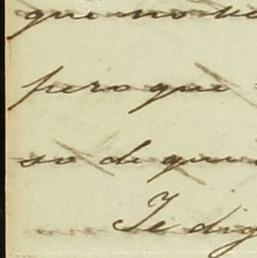 que no
pero que
so de que
Te dig